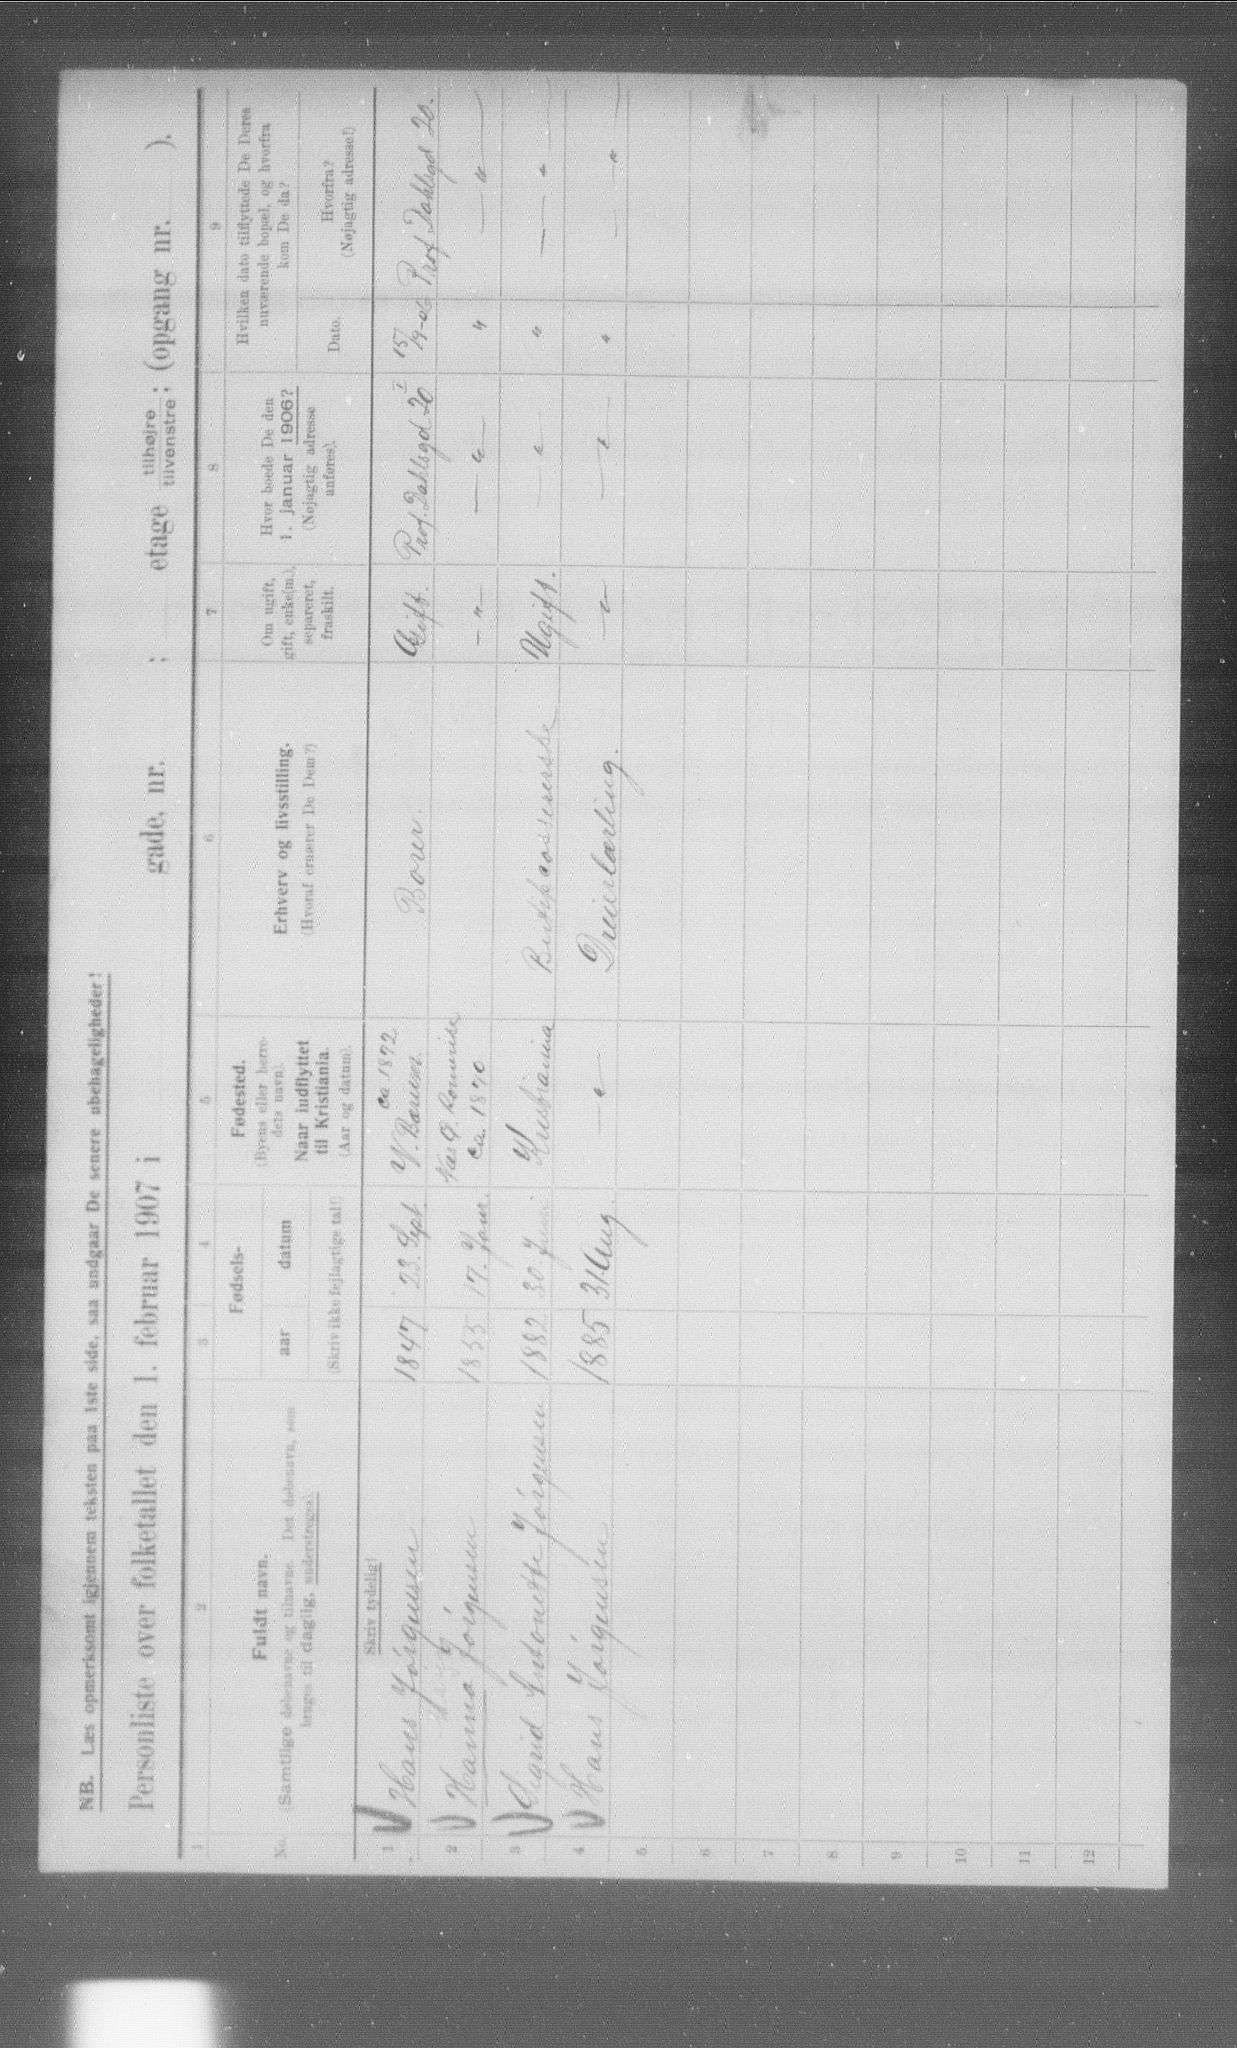 NB. Læs opmerksomt igjennem teksten paa 1ste side, saa undgaar De senere ubehageligheder!
Personliste over folketallet den 1. februar 1907 i gade, nr. ; etage tilhøjre tilvenstre ; (opgang nr. ).
1 2 3 4 5 6 7 8 9
No.
Fuldt navn.
(Samtlige debenavne og tilnavne. Det debenavn, som
bruges til daglig, understreges).
Fødsels-
aar datum
(Skriv ikke fejlagtige tal!)
Fødested.
(Byens eller herre-
dets navn).
Naar indflyttet
til Kristiania.
(Aar og datum).
Erhverv og livsstilling.
(Hvoraf ernærer De Dem?)
Om ugift,
gift, enke(m.),
separeret,
fraskilt.
Hvor boede De den
1. januar 1906?
(Nøjagtig adresse
anføres).
Hvilken dato tilflyttede De Deres
nuværende bopæl, og hvorfra
kom De da?
Dato.
Hvorfra?
(Nøjagtig adresse!)
Skriv tydelig!
1 Hans Jörgensen 1847 23. Sept. ca 1872 V. Bærum. Borer. Gift. Prof. Dahlsgd 20 I 15/9-06 Prof. Dahlsgd 20.
2 Hanna Jörgensen 1853 17. Janr. Ø. ca. 1870 — " — — " — " — " —
3 Sigrid Antonette Jörgensen 1882 30. Juni. Kristiania Ugift. " " — " —
4 Hans Jörgensen 1885 31 Aug. — " — Dreierlærling. — " — — " — " — " —
5
6
7
8
9
10
11
12